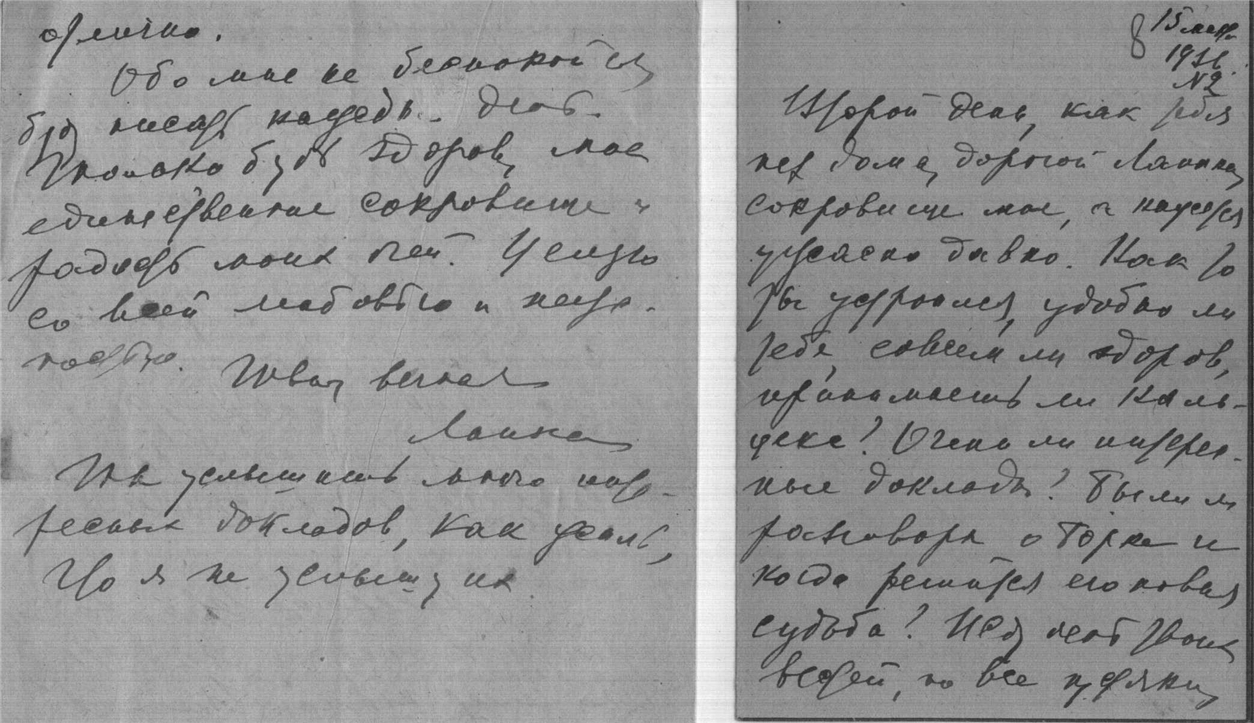 отлично.
Обо мне не беспокойся,
буду писать день.
Только будь здоров, мое
единственное сокровище и
радость моих очей. Целую
со всей любовью и неж-
ностью.
Твоя верная
Ты услышишь много инте-
ресных докладов, как жаль,
что я не услышу их
8 15 мая
№2
Второй день, как тебя
нет дома, дорогой
сокровище мое, а кажется
ужасно давно. Как то
ты устроился, удобно ли
тебе, совсем ли здоров,
принимаешь ли Каль-
цекс? Очень ли интерес-
ные доклады? Были ли
разговоры о Борке и
когда решится его новая
судьба? Жду твоих
вестей, но все